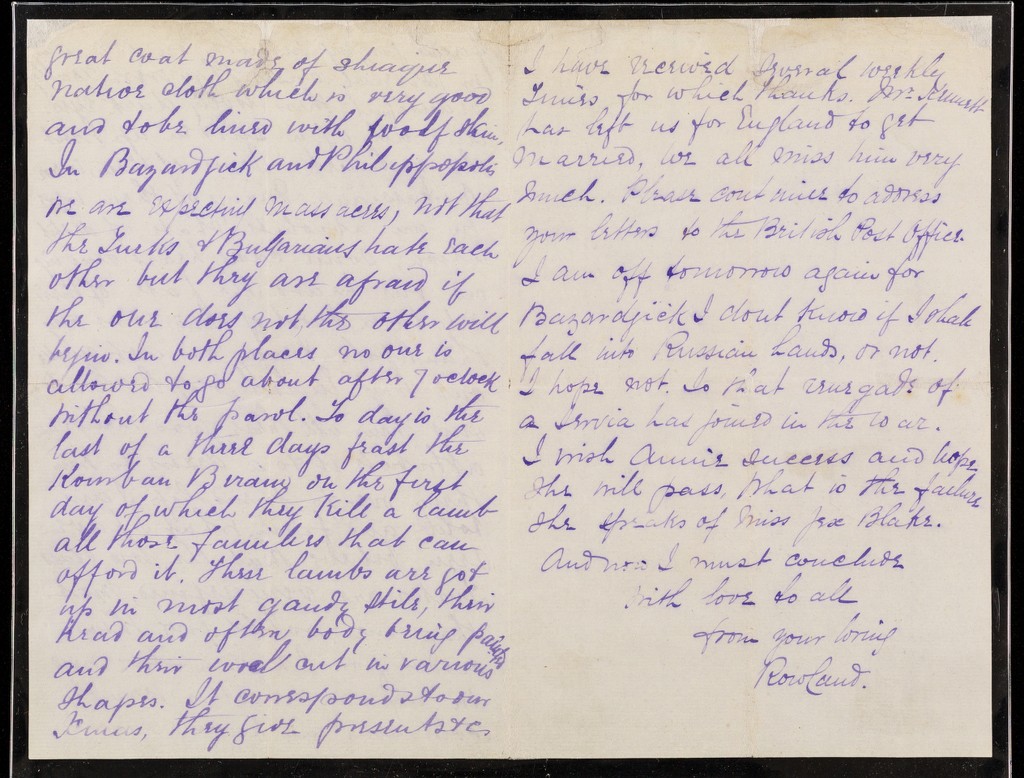 great coat made of shiaque
native cloth which is very good
and to be lined with woolf skin,
In Bazardjick and Philippopolis
we are expecting massacres, not that
the Turks & Bulgarians hate each
other but they are afraid if
the one does not, the other will
begin. In both places no one is
allowed to go about after 7 oclock
without the parol. To day is the
last of a three days feast the
Kourban Biram, on the first
day of which they kill a lamb
all those families that can
afford it. These lambs are got
up in most gaudy stile, their
head and often body being painted
and their wool cut in various
shapes. It corresponds to our
Xmas, they give presents &c
I have received several weekly
Times for which thanks. Mr.
has left us for England to get
married, we all miss him very
much. Please continue to address
your letters to the British Post Office.
I am off tomorrow again for
Bazardjick I dont know if I shall
fall into Russian hands, or not.
I hope not. So that renegade of
a Servia has joined in the war.
I wish Annie success and hope
she will pass, What is the failure
she speaks of Miss Jex Blake.
And now I must conclude
with love to all
from your loving
Rowland.